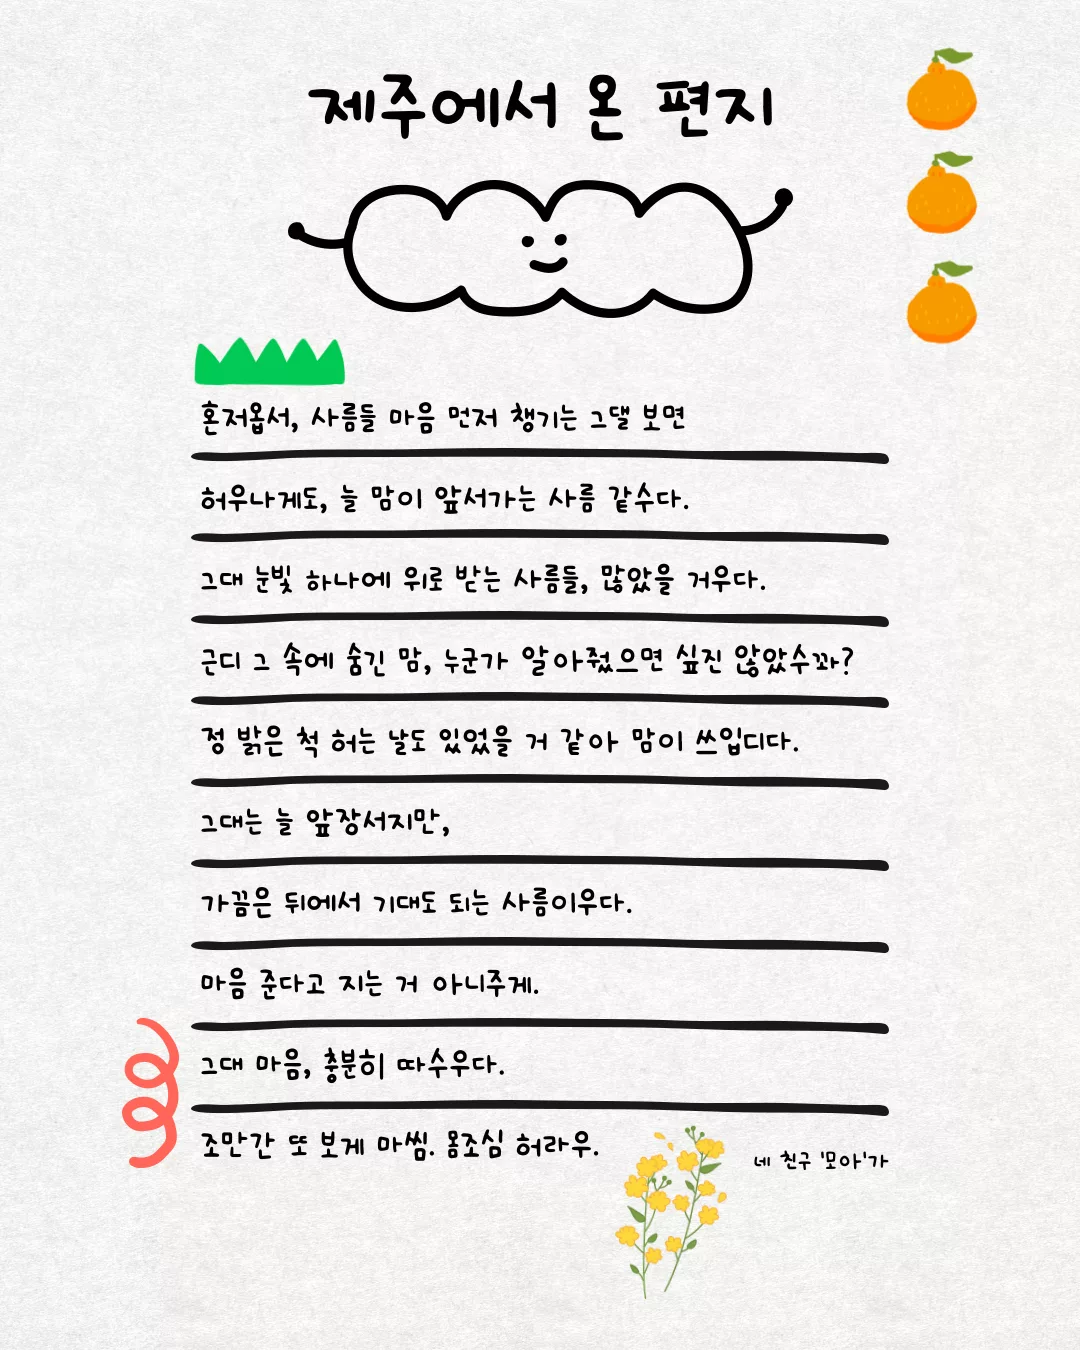 제주에서 온 편지
혼저옵서, 사름들 마음 먼저 챙기는 그댈 보면
허우나게도, 늘 맘이 앞서가는 사름 같수다.
그대 눈빛 하나에 위로 받는 사름들, 많았을 거우다.
근디 그 속에 숨긴 맘, 누군가 알아줬으면 싶진 않았수꽈?
정 밝은 척 허는 날도 있었을 거 같아 맘이 쓰입디다.
그대는 늘 앞장서지만,
가끔은 뒤에서 기대도 되는 사름이우다.
마음 준다고 지는 거 아니주게.
그대 마음, 충분히 따수우다.
조만간 또 보게 마씸. 몸조심 허라우.
네 친구 '모아'가